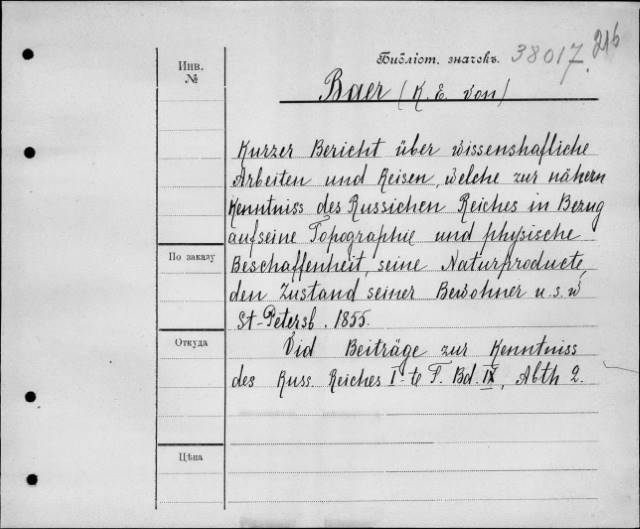 Инв. №
Библіот. значекъ. 38017. 216
Baer (K. E. von)
Kurzer Bericht über wissenshafliche
Arbeiten und Reisen, welche zur nähern
Kenntniss des Russichen Reiches in Bezug
auf seine Topographie und physische
Beschaffenheit, seine Naturproducte,
По заказу
den Zustand seiner Bewohner u. s. w
St-Petersb. 1855.
Откуда
Vid Beiträge zur Kenntniss
des Russ. Reiches I-te F. Bd. IX, Abth 2.
Цѣна